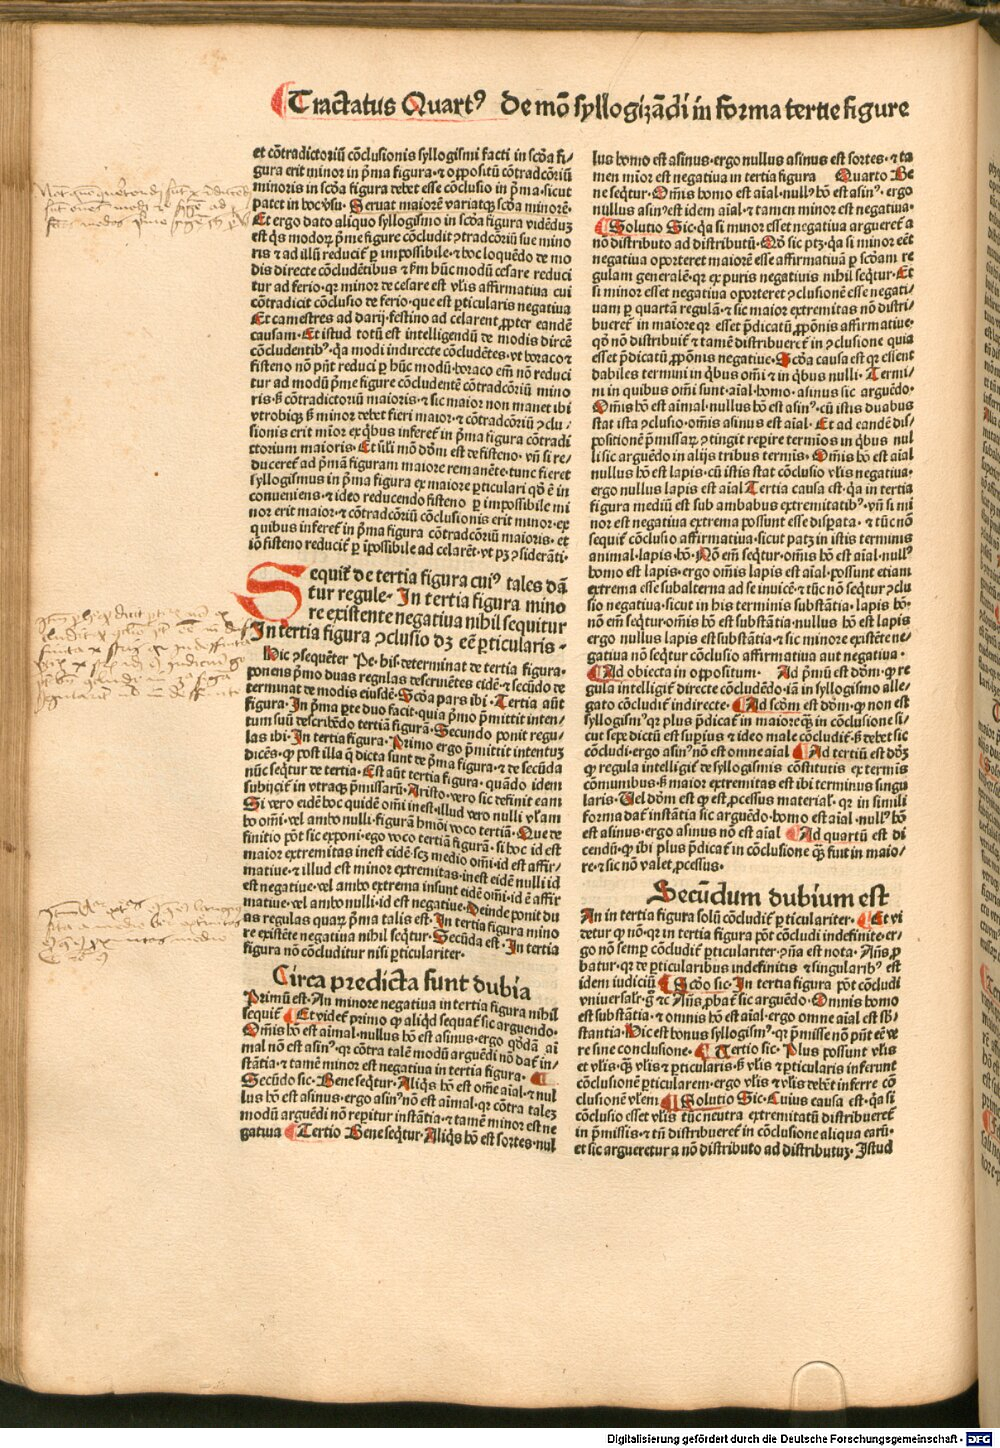 Tractatus Quartꝰ De mō syllogizādi in forma tertie figure
et cōtradictoriū cōclusionis syllogismi facti in scďa fi/
gura erit minor in pͥma figura· ⁊ oppositū cōtradcōriū
minoris in scďa figura debet esse cōclusio in pͥma· sicut
patet in bocysu· Seruat maiorē variatqꝫ scďa minorē·
Et ergo dato aliquo syllogismo in scďa figura vidēdū
est qͥs modoꝝ pͥme figure concludit ꝯtradcōriū sue mino
ris ⁊ ad illū reducit̄ ꝑ impossibile· ⁊ hoc loquēdo de mo
dis directe cōcludētibus ⁊ fꝫm hūc modū cesare reduci
tur ad ferio· qꝛ minor de cesare est vlis affirmatiua cui
cōtradicit cōclusio de ferio· que est ꝑticularis negatiua
Et camestres ad darij· festino ad celarent ꝓpter eandē
causam· Et istud totū est intelligendū de modis directē
cōcludentibꝰ· qꝛ modi indirecte cōcludētes· vt boraco ⁊
fisteno nō pn̄t reduci ꝑ hūc modū· boraco em̄ nō reduci
tur ad modū pͥme figure concludentē cōtradcōriū mino
ris· ꝫ cōtradictoriū maioris· ⁊ sic maior non manet ibi
vtrobiqꝫ ꝫ minor debet fieri maior· ⁊ cōtradcōriū ꝯclu/
sionis erit mīor ex qͥbus inferet̄ in pͥma figura cōtradi
ctorium maioris· Et sili mō dōm est de fisteno· vn̄ si re/
duceret̄ ad pͥmā figuram maiore remanēte· tunc fieret
syllogismus in pͥma figura ex maiore ꝑticulari qď ē in
conueniens· ⁊ ideo reducendo fisteno ꝑ impossibile mi
nor erit maior· ⁊ cōtradcōriū cōclusionis erit minor· ex
quibus inferet̄ in pͥma figura cōtradcōriū maioris· et
iō fisteno reducit̄ ꝑ īpossibile ad celarēt· vt pꝫ ꝯsiderāti·
Sequit̄ de tertia figura cuiꝰ tales dā
tur regule· In tertia figura mino
re existente negatiua nihil sequitur
In tertia figura ꝯclusio dꝫ eē ꝑticularis·
Hic ꝯsequēter Pe· his· determinat de tertia figura·
ponens pͥmo duas regulas deseruiētes eidē· ⁊ secūdo de
terminat de modis eiusdē· Scďa pars ibi· Tertia aūt
figura· In pͥma ꝑte duo facit· quia pͥmo pͥmittit inten/
tum suū describēdo tertiā figurā· Secundo ponit regu/
las ibi· In tertia figura· Primo ergo pͥmittit intentuꝫ
dicēs· ꝙ post illa q̄ dicta sunt de pͥma figura· ⁊ de secūda
nūc seqͥtur de tertia· Est aūt tertia figura· quādo idem
subijcit̄ in vtraqꝫ pͥmissarū· Aristo· vero sic definit eam
Si vero eidē hoc quidē om̄i inest· illud vero nulli vl am
bo om̄i· vel ambo nulli· figurā hmōi voco tertiā· Que de
finitio pōt sic exponi· ego voco tertiā figurā· si hoc id est
maior extremitas inest eidē· scꝫ medio om̄i· id est affir/
matiue· ⁊ illud est minor extremitas· inest eidē nulli id
est negatiue· vel ambo extrema insunt eidē om̄i· id ē affir
matiue· vel ambo nulli· id est negatiue· Deinde ponit du
as regulas quaꝝ pͥma talis est· In tertia figura mino
re existēte negatiua nihil seqͥtur· Secūda est· In tertia
figura nō concluditur nisi ꝑticulariter·
Circa predicta sunt dubia
Primū est· An minore negatiua in tertia figura nihil
sequit̄ Et videt̄ primo ꝙ aliqͥd sequat̄ sic arguendo·
Om̄is hō est aimal· nullus hō est asinus· ergo qōdā ai
mal nō est asinꝰ· qꝛ cōtra talē modū arguēdi nō dat̄ in/
stātia· ⁊ tamē minor est negatiua in tertia figura·
Secūdo sic· Bene seqͥtur· Aliqͥs hō est om̄e aīal· ⁊ nul
lus hō est asinus· ergo asinꝰ nō est aimal· qꝛ cōtra taleꝫ
modū arguēdi nō reꝑitur instātia· ⁊ tamē minor est ne
gatiua Tertio Bene seqͥtur· Aliqͥs hō est sortes· nul
lus homo est asinus· ergo nullus asinus est sortes· ⁊ ta
men mīor est negatiua in tertia figura Quarto Be
ne seqͥtur· Om̄is homo est aīal· nullꝰ hō est asinꝰ· ergo
nullus asinꝰ est idem aīal· ⁊ tamen minor est negatiua·
Solutio Sic· qꝛ si minor esset negatiua argueret̄ a
nō distributo ad distributū· Qď sic ptꝫ· qꝛ si minor eēt
negatiua oporteret maiorē esse affirmatiuā ꝑ scďam re
gulam generalē· qꝛ ex puris negatiuis nihil seqͥtur· Et
si minor esset negatiua oporteret ꝯclusionē esse negati/
uam ꝑ quartā regulā· ⁊ sic maior extremitas nō distri/
bueret̄ in maiore qꝛ esset pͥdicatū ꝓpōnis affirmatiue·
qď nō distribuit̄ ⁊ tamē distribueret̄ in ꝯclusione quia
esset pͥdicatū ꝓpōnis negatiue· Scďa causa est qꝛ essent
dabiles termini in qͥbus om̄i ⁊ in qͥbus nulli· Termi/
ni in quibus om̄i sunt· aīal· homo· asinus sic arguēdo·
Om̄is hō est aimal· nullus hō est asinꝰ· cū istis duabus
stat ista ꝯclusio· om̄is asinus est aīal· Et ad eandē dis/
positionē pͥmissaꝝ ꝯtingit reꝑire termīos in qͥbus nul
li sic arguēdo in alijs tribus termīs· Om̄is hō est aīal
nullus hō est lapis· cū istis stat cōclusio vlis negatiua·
ergo nullus lapis est aīal Tertia causa est· qꝛ in tertia
figura mediū est sub ambabus extremitatibꝰ· vn̄ si mi
nor est negatiua extrema possunt esse disꝑata· ⁊ tūc nō
sequit̄ cōclusio affirmatiua· sicut patꝫ in istis terminis
animal· lapis· hō· Nō em̄ seqͥtur· om̄is hō est aīal· nullꝰ
homo est lapis· ergo om̄is lapis est aīal· possunt etiam
extrema esse subalterna ad se inuicē· ⁊ tūc nō seqͥtur ꝯclu
sio negatiua· sicut in his terminis substātia· lapis hō·
nō em̄ seqͥtur· om̄is hō est substātia· nullus hō est lapis
ergo nullus lapis est substātia· ⁊ sic minore existēte ne/
gatiua nō seqͥtur cōclusio affirmatiua aut negatiua·
Ad obiecta in oppositum· Ad pͥmū est dōm· ꝙ re
gula intelligit̄ directe cōcludēdo· iā in syllogismo alle/
gato cōcludit̄ indirecte· Ad scōm est dōm· ꝙ non est
syllogismꝰ qꝛ plus pͥdicat̄ in maiore qꝫ in cōclusione si/
cut sepe dictū est supius ⁊ ideo male cōcludit̄· ꝫ debet sic
cōcludi· ergo asinꝰ nō est omne aīal Ad tertiū est dōꝫ
ꝙ regula intelligit̄ de syllogismis cōstitutis ex termīs
cōmunibus· ꝫ maior extremitas est ibi terminus singu
laris· Uel dōm est ꝙ est ꝓcessus material· qꝛ in simili
forma dat̄ instātia sic arguēdo· homo est aīal· nullꝰ hō
est asinus· ergo asinus nō est aīal Ad quartū est di
cendū· ꝙ ibi plus pͥdicat̄ in cōclusione qꝫ fuit in maio/
re· ⁊ sic nō valet ꝓcessus·
Secūdum dubium est
An in tertia figura solū cōcludit̄ ꝑticulariter· Et vi
detur ꝙ nō· qꝛ in tertia figura pōt cōcludi indefinite· er/
go nō semꝑ cōcludit̄ ꝑticulariter· ꝯn̄a est nota· An̄s ꝓ
batur· qꝛ de ꝑticularibus indefinitis ⁊ singularibꝰ est
idem iudiciū Scďo sic· In tertia figura pōt cōcludi
vniuersalr· gͦ ⁊c̄ Añs ꝓbat̄ sic arguēdo· Omnis homo
est substātia· ⁊ omnis hō est aīal· ergo omne aīal est sb̄/
stantia· Hic est bonus syllogismꝰ· qꝛ pͥmisse nō pn̄t eē ve
re sine conclusione· Tertio sic· Plus possunt vlis
et vlis· qꝫ vlis ⁊ ꝑticularis· ꝫ vlis ⁊ ꝑticularis inferunt
cōclusionē ꝑticularem· ergo vlis ⁊ vlis debēt inferre cō
clusionē vlem Solutio Sic· Cuius causa est· qꝛ si
cōclusio esset vlis tūc neutra extremitatū distribueret̄
in pͥmissis· ⁊ tn̄ distribueret̄ in cōclusione aliqua earū·
et sic argueretur a nō distributo ad distributuꝫ· Istud
Digitalisierung gefördert durch die Deutsche Forschungsgemeinschaft - DFG